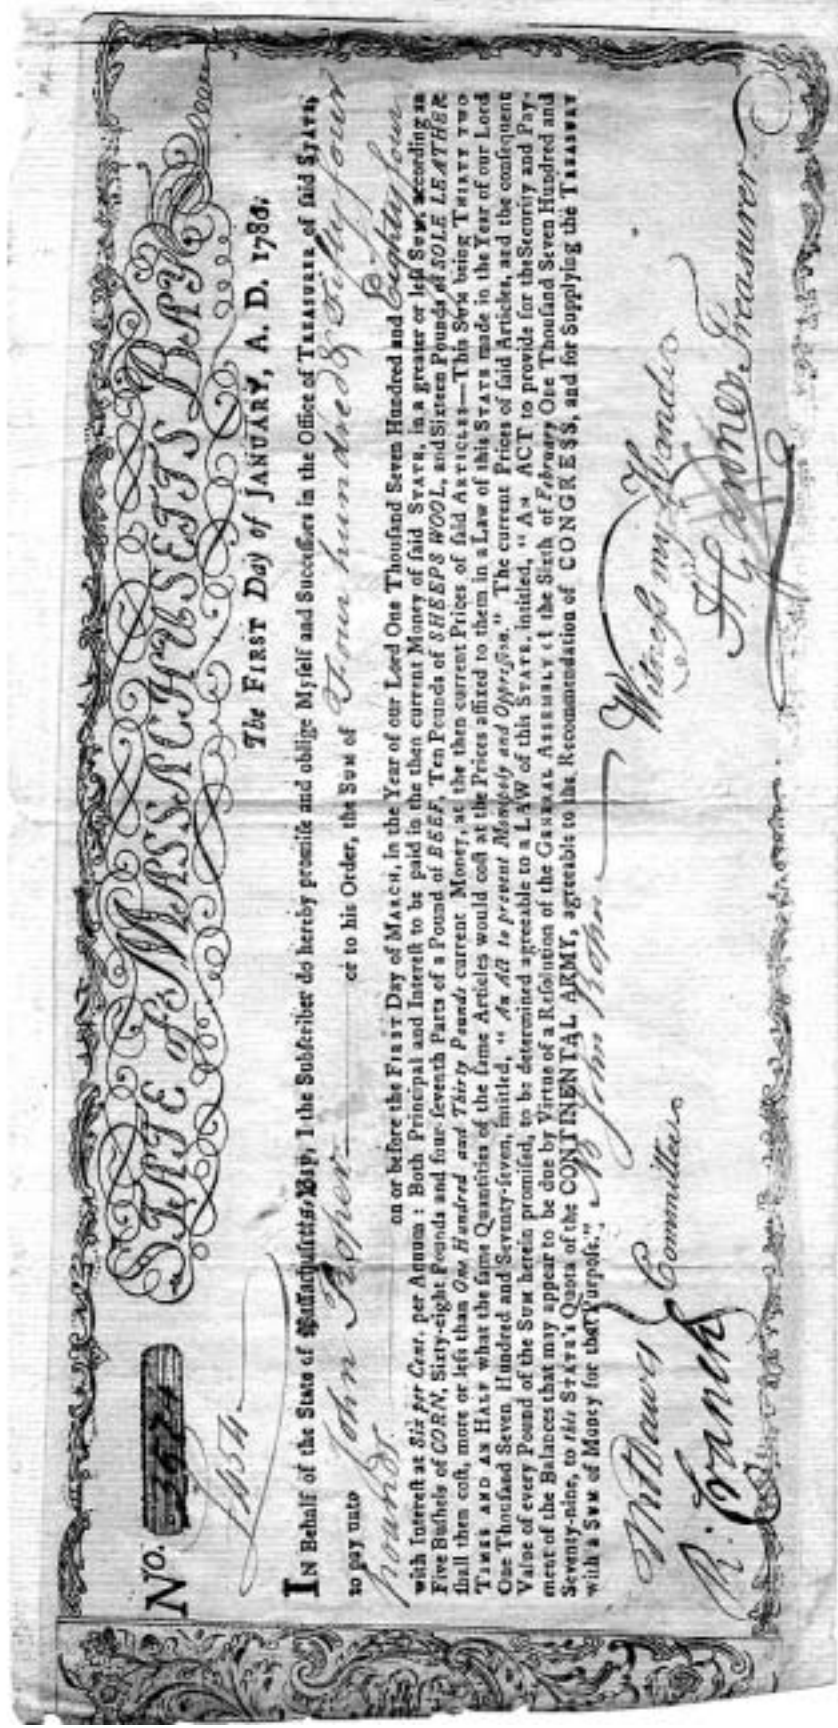 STATE of MASSACHUSETTS BAY
No. 3671
The FIRST Day of JANUARY, A. D. 1780.
£454
IN Behalf of the State of Massachusetts-Bay, I the Subscriber do hereby promise and oblige Myself and Successors in the Office of TREASURER of said STATE,
to pay unto John Roper or to his Order, the Sum of Four hundred & Fifty four
pounds on or before the FIRST Day of MARCH, in the Year of our Lord One Thousand Seven Hundred and Eighty four
with Interest at Six per Cent. per Annum: Both Principal and Interest to be paid in the then current Money of said STATE, in a greater or less SUM, according as
Five Bushels of CORN, Sixty-eight Pounds and four-seventh Parts of a Pound of BEEF, Ten Pounds of SHEEPS WOOL, and Sixteen Pounds of SOLE LEATHER
shall then cost, more or less than One Hundred and Thirty Pounds current Money, at the then current Prices of said ARTICLES—This SUM being THIRTY TWO
TIMES AND AN HALF what the same Quantities of the same Articles would cost at the Prices affixed to them in a Law of this STATE made in the Year of our Lord
One Thousand Seven Hundred and Seventy-seven, intitled, "An Act to prevent Monopoly and Oppression." The current Prices of said Articles, and the consequent
Value of every Pound of the SUM herein promised, to be determined agreeable to a LAW of this STATE, intitled, "AN ACT to provide for the Security and Pay-
ment of the Balances that may appear to be due by Virtue of a Resolution of the GENERAL ASSEMBLY of the Sixth of February One Thousand Seven Hundred and
Seventy-nine, to this STATE's Quota of the CONTINENTAL ARMY, agreeable to the Recommendation of CONGRESS, and for Supplying the TREASURY
with a SUM of Money for that Purpose."
Witness my Hand
R: Cranch
Committee
H Gardner Treasurer